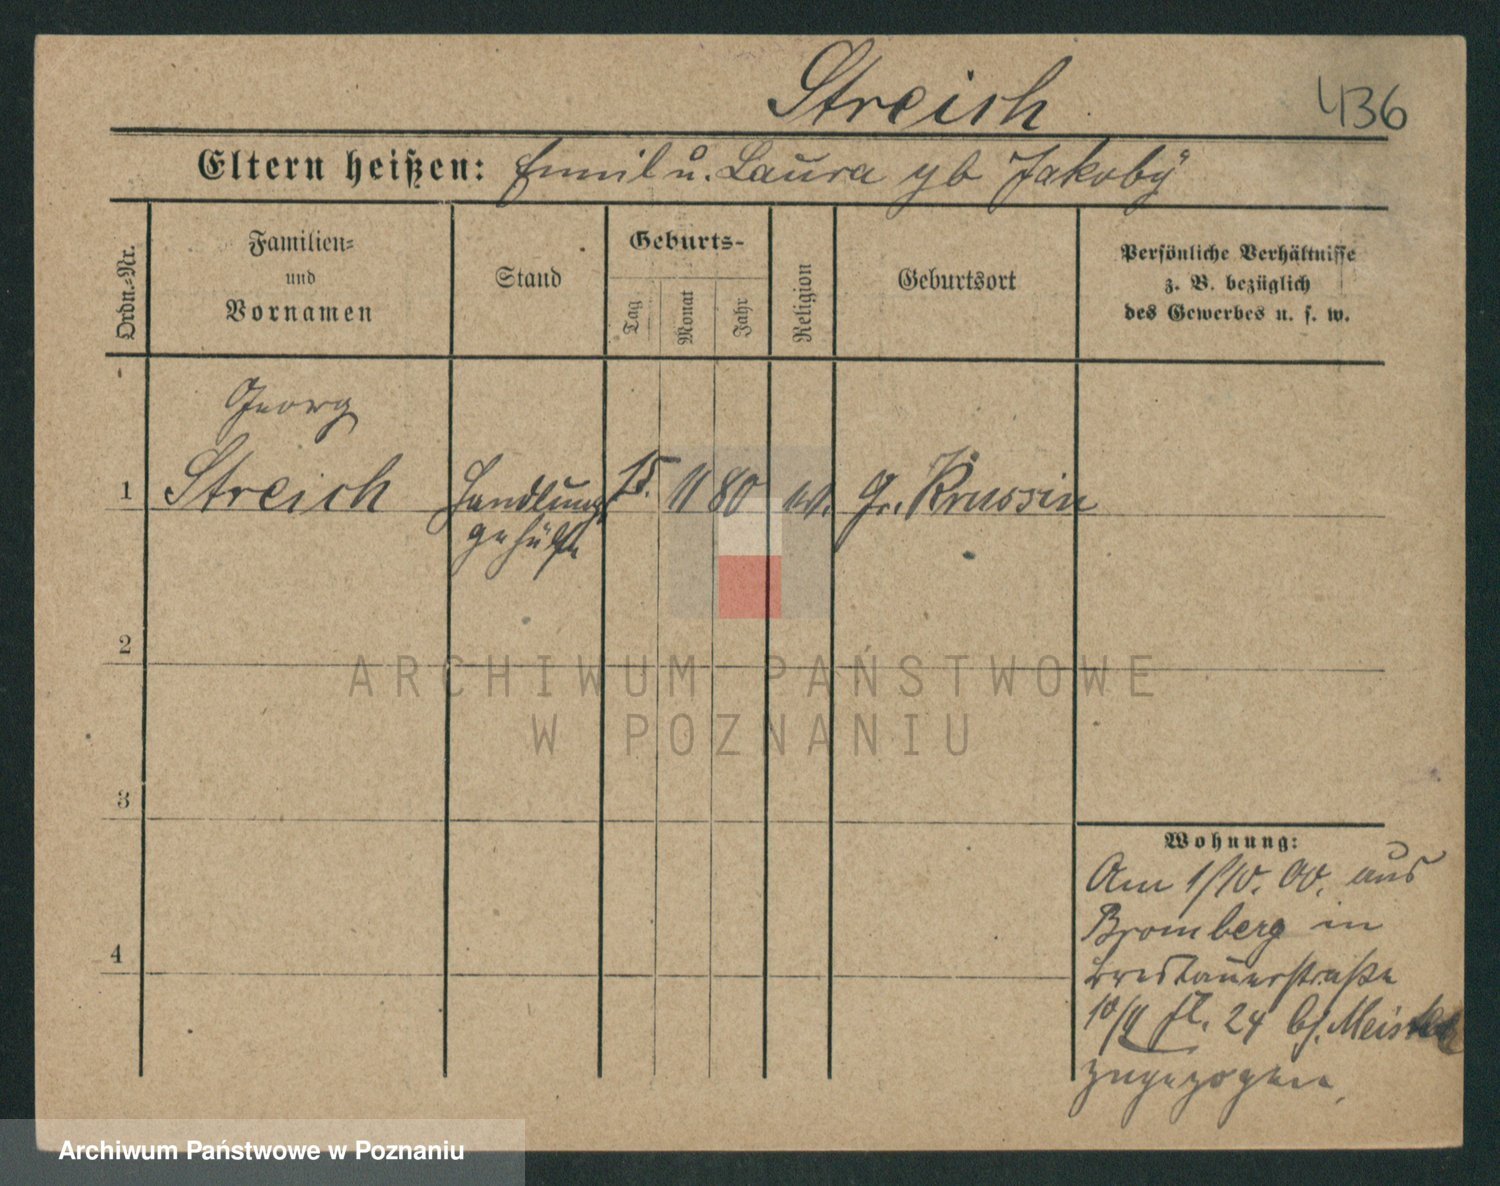 Streich
436
Eltern heißen: Emil u. Laura gb Jakoby
Ordn.-Nr.
Familien-
und
Vornamen
Stand
Geburts-
Tag
Monat
Jahr
Religion
Geburtsort
Persönliche Verhältnisse
z. B. bezüglich
des Gewerbes u. s. w.
Georg
1 Streich Handlungs 15. 11 80 ev. Gr. Krussin
gehülfe
2
3
4
Wohnung:
Am 1/10. 00. aus
Bromberg in
Breslauerstraße
10/11 24 bj. Meister
zugezogen.
ARCHIWUM PAŃSTWOWE
W POZNANIU
Archiwum Państwowe w Poznaniu